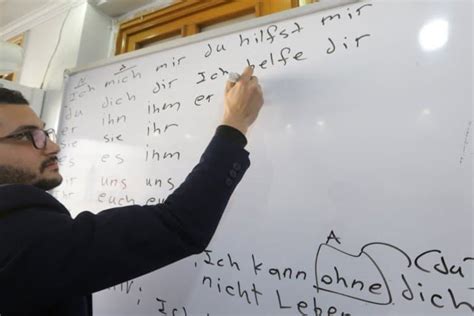 N A
Ich mich mir du hilfst mir
du dich dir Ich helfe dir
er ihn ihm er
sie ihr
es ihm
uns uns
euch
A
Ich kann ohne dich (du
nicht Leben
Ich